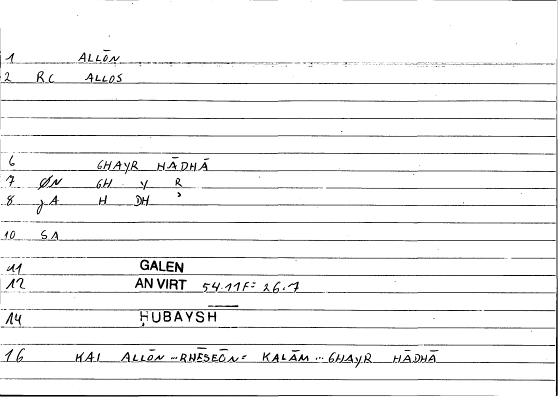 1 ALLŌN
2 RC ALLOS
6 GHAYR HĀDHĀ
7 ØN GH Y R
8 A H DH ʾ
10 SA
11 GALEN
12 AN VIRT 54.11F= 26.7
14 ḤUBAYSH
16 KAI ALLŌN...RHĒSEŌN= KALĀM...GHAYR HĀDHĀ